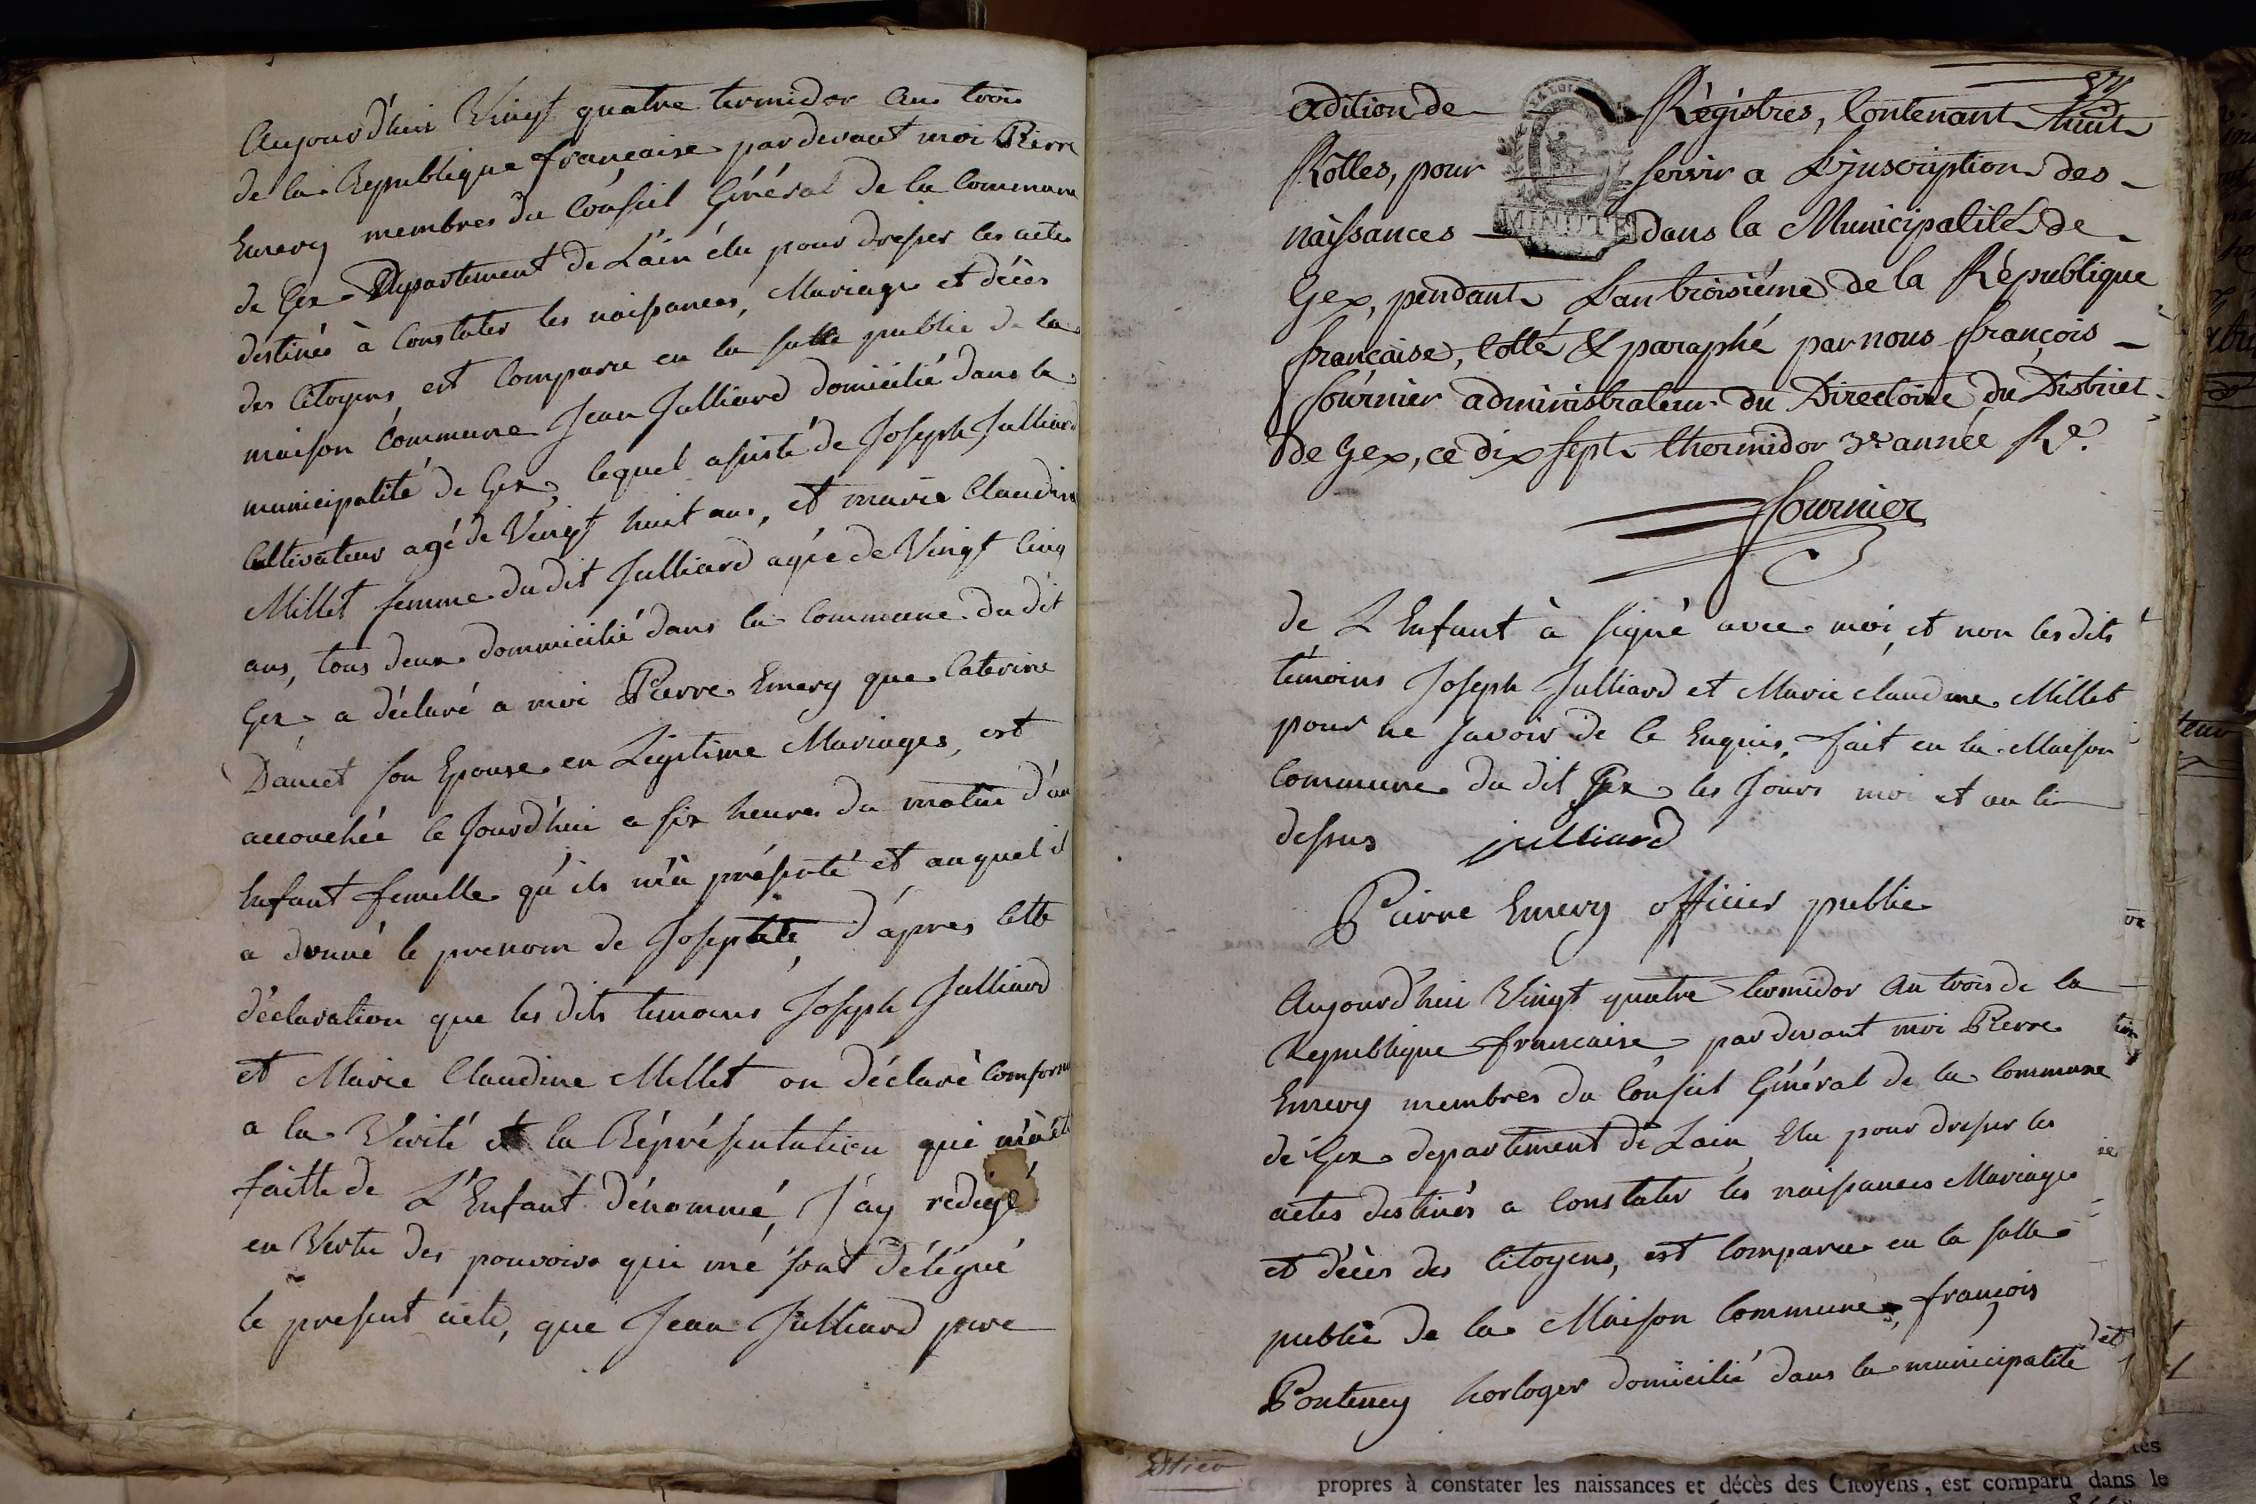 Aujourd'huis Vingt quatre termidor an trois
de la République française par devant moi Pierre
Emery membres du Conseil Général de la Commune
de Gex Département de L'ain élu pour dresser les actes
destinés à Constater les naissances, Mariage et décès
des Citoyens est Comparu en la salle public de la
maison Commune Jean Julliard domicilié dans la
municipalité de Gex, lequel assisté de Joseph Julliard
Cultivateur agé de Vingt huit ans, et marie Claudine
Millet femme du dit Julliard agée de Vingt Cinq
ans, tous deux dommicilié dans la Commune du dit
Gex a déclaré a moi Pierre Emery que Caterine
son Epouse en Légitime Mariages, est
accouchée le Jourd'hui a six heures du matin d'un
Enfant femelle qu'ils m'a présenté et auquel il
a donné le prenom de d'apres Cette
déclaration que les dits temoins Joseph Julliard
et Marie Claudine Millet on déclaré Conforme
a la Vérité et la Réprésentation qui m'a été
faitte de L'Enfant dénommé, J'ay redigé
en Vertu des pouvoirs qui mé sont délégué
le présent acte, que Jean Julliard pere
87
adition de Régistres, Contenant huit
Rôlles, pour servir a L'juscription des
MINUTE
naissances dans la Municipalité de
Gex, pendant L'an troisiéme de la République
française, Cotté & paraphé par nous françois
fournier administrateur du Directoire du District
de Gex, ce dix sept thermidor 3e année Re.
fournier
de L'Enfant à signé avec moi, et non les dits
témoins Joseph Julliard et Marie claudine Millet
pour ne savoir de ce Enquis, fait en la Maison
Commune du dit Gex les Jours moi et an ci
dessus julliard
Pierre Emery officier public
Aujourd'hui Vingt quatre termidor an trois de la
République francaise par devant moi Pierre
Emery membres du Conseil Général de la Commune
de Gex departement de Lain Elu pour dresser les
actes destinés a Constater les naissances Mariage
et décès des Citoyens, est Comparu en la salle
public de la Maison Commune, françois
Ponteney horloger domicilié dans la municipalité
propres à constater les naissances et décès des Citoyens, est comparu dans le